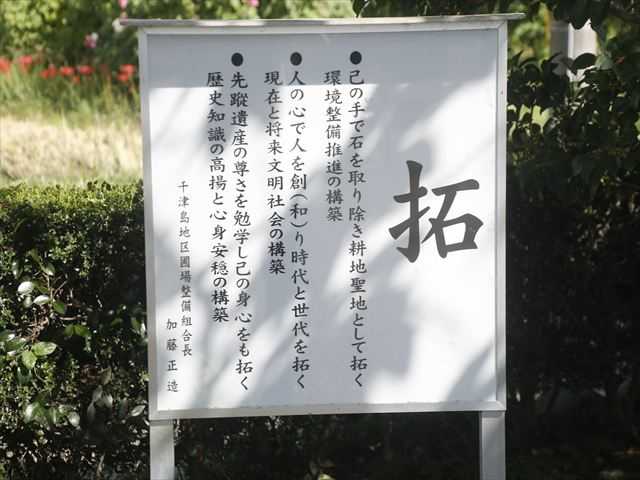 拓
●己の手で石を取り除き耕地聖地として拓く
環境整備推進の構築
●人の心で人を創(和)り時代と世代を拓く
現在と将来文明社会の構築
●先蹤遺産の尊さを勉学し己の身心をも拓く
歴史知識の高揚と心身安穏の構築
千津島地区圃場整備組合長
加藤正造